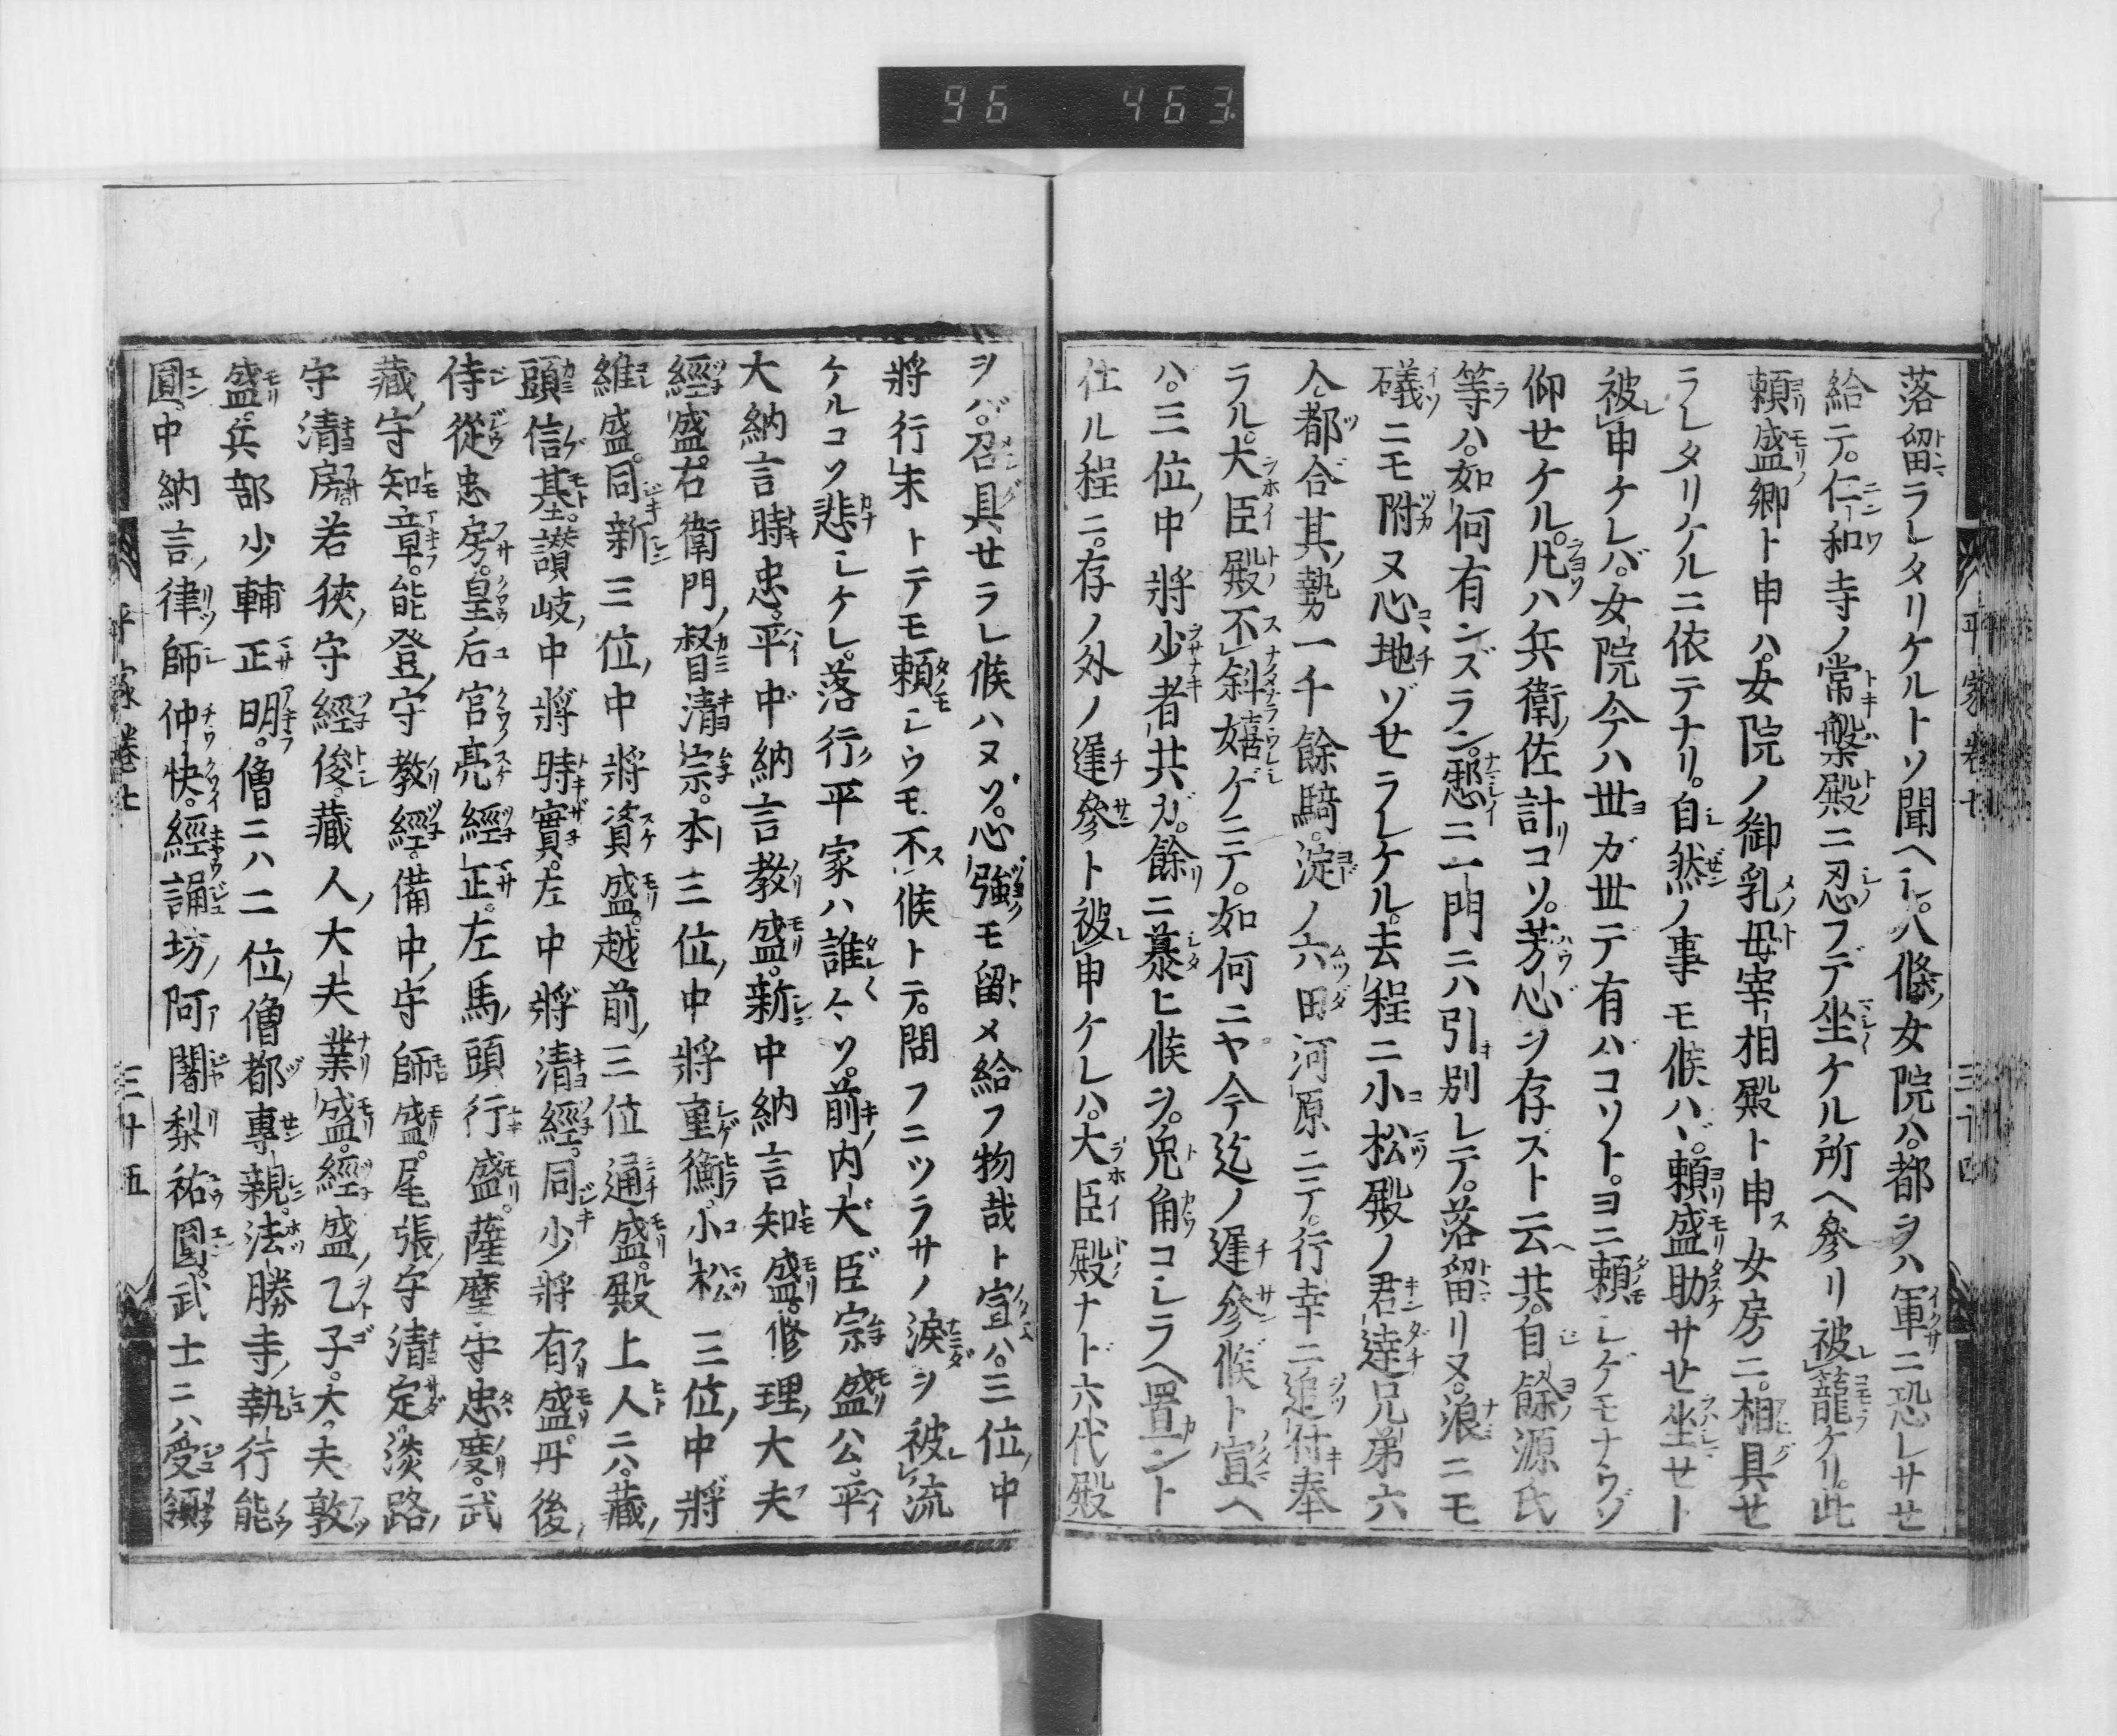 96 463
平家巻七 三十四
落留ラレタリケルトソ聞ヘシ。八條女院ハ。都ヲハ軍ニ恐レサセ
給テ。仁和寺ノ常槃殿ニ忍フデ坐ケル所ヘ參リ被籠ケリ。此
頼盛卿ト申ハ。女院ノ御乳母宰相殿ト申女房ニ。相具セ
ラレタリケルニ依テナリ。自然ノ事モ候ハヾ。頼盛助サセ坐セト
被申ケレバ。女院今ハ世ガ世デ有ハコソト。ヨニ頼レゲモナウゾ
仰セケル。凡ハ兵衛佐計コソ。芳心ヲ存ズト云共。自餘ノ源氏
等ハ。如何有ンズラン。憖ニ一門ニハ引別レテ。落留リヌ。浪ニモ
礒ニモ附ヌ心地ゾセラレケル。去程ニ小松殿ノ君達兄弟六
人都合其勢一千餘騎。淀ノ六田河原ニテ。行幸ニ追付奉
ラル。大臣殿不斜嬉ゲニテ。如何ニヤ今迄ノ遲參候ト宣ヘ
ハ。三位中將少者共ガ。餘ニ慕ヒ候ヲ。兎角コシラヘ置ント
仕ル程ニ。存ノ外ノ遲參ト被申ケレハ。大臣殿ナド六代殿
ヲバ。召具セラレ候ハヌソ。心強モ留メ給フ物哉ト宣ハ。三位中
將行末トテモ頼シウモ不候トテ。問フニツラサノ涙ヲ被流
ケルコソ悲シケレ。落行平家ハ誰々ソ。前内大臣宗盛公。平
大納言時忠。平中納言教盛。新中納言知盛。修理大夫
經盛。右衛門督清宗。本三位中將重衡。小松三位中將
維盛。同新三位中將資盛。越前三位通盛。殿上人ニハ。藏
頭信基。讃岐中將時實。左中將清經。同少將有盛。丹後
侍從忠房。皇后宮亮經正。左馬頭行盛。薩摩守忠度。武
藏守知章。能登守教經。備中守師盛。尾張守清定。淡路
守清房。若狹守經俊。藏人大夫業盛。經盛乙子。大夫敦
盛。兵部少輔正明。僧ニハ二位僧都專親。法勝寺執行能
圓。中納言律師仲快。經誦坊阿闍梨祐圓。武士ニハ受領
平家巻七 三十五